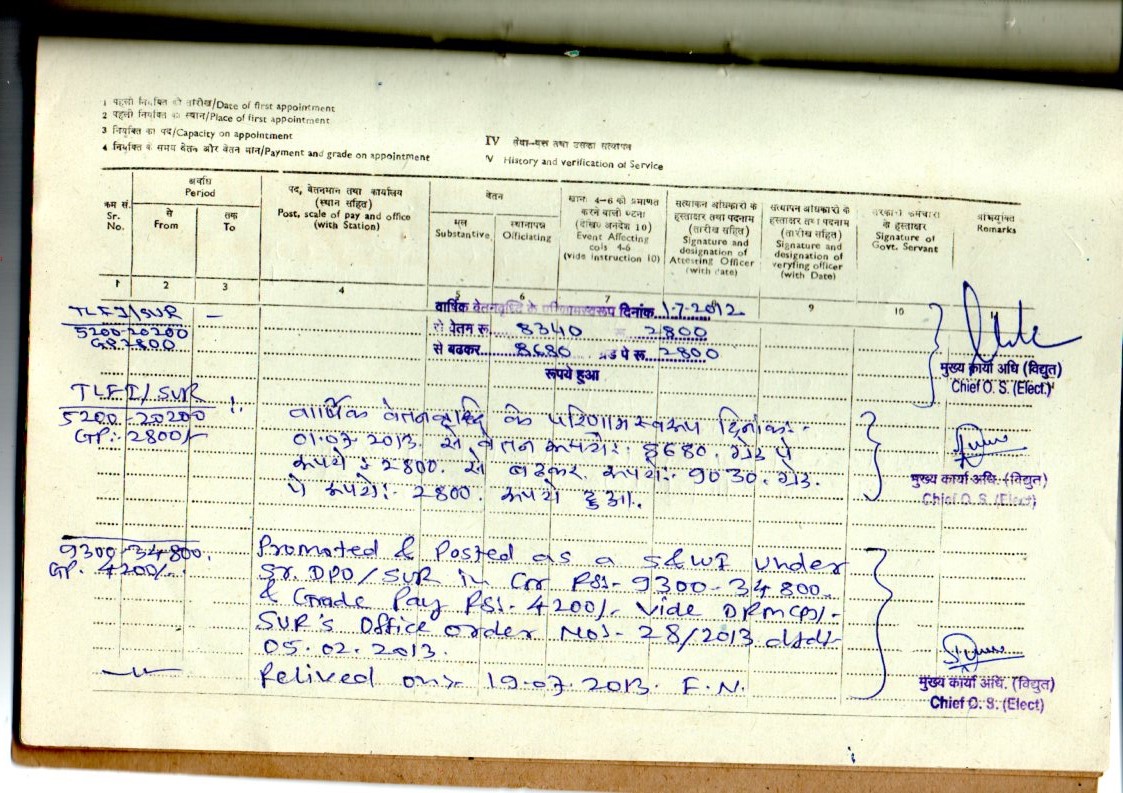 1 पहली नियुक्ति की तारीख/Date of first appointment
2 पहली नियुक्ति का स्थान/Place of first appointment
3 नियुक्ति का पद/Capacity on appointment
4 नियुक्ति के समय वेतन और वेतन मान/Payment and grade on appointment
IV सेवा-वृत्त तथा उसका सत्यापन
V History and verification of Service
क्रम सं. Sr. No.
अवधि Period
से From
तक To
पद, वेतनमान तथा कार्यालय (स्थान सहित) Post, scale of pay and office (with Station)
वेतन
मूल Substantive
स्थानापन्न Officiating
खाना 4-6 को प्रमाणित करने वाली घटना (देखिए अनुदेश 10) Event Affecting cols 4-6 (vide instruction 10)
सत्यापन अधिकारी के हस्ताक्षर तथा पदनाम (तारीख सहित) Signature and designation of Attesting Officer (with date)
सत्यापन अधिकारी के हस्ताक्षर तथा पदनाम (तारीख सहित) Signature and designation of veryfing officer (with Date)
सरकारी कर्मचारी के हस्ताक्षर Signature of Govt. Servant
अभियुक्ति Remarks
1 2 3 4 5 6 7 9 10
TLFI/SUR – वार्षिक वेतनवृद्धि के परिणामस्वरूप दिनांक 1-7-2012
5200-20200 से वेतन रू. 8340 2800
GP 2800 से बढकर 8680 ग्रेड पे रू. 2800
रूपये हुआ
मुख्य कार्या अधि (विद्युत)
Chief O. S. (Elect.)
TLFI/SUR
5200-20200 वार्षिक वेतनवृद्धि के परिणाम स्वरूप दिनांक:-
GP:- 2800/- 01.07.2013. से वेतन रूपये: 8680. ग्रेड पे
रूपये: 2800. से बढकर. रूपये:- 9030. ग्रेड.
पे रूपये:- 2800. रूपये हुआ.
मुख्य कार्या अधि. (विद्युत)
Chief O. S. (Elect)
9300-34800. Promoted & Posted as a S&WI under
GP. 4200/- Sr. DPO/SUR in Gr RS:- 9300-34800.
& Grade Pay RS:- 4200/- vide DRM(P)/-
SUR's Office order No:- 28/2013 dtd:-
05.02.2013.
Relived on:- 19.07.2013. F.N.
मुख्य कार्या अधि. (विद्युत)
Chief O. S. (Elect)